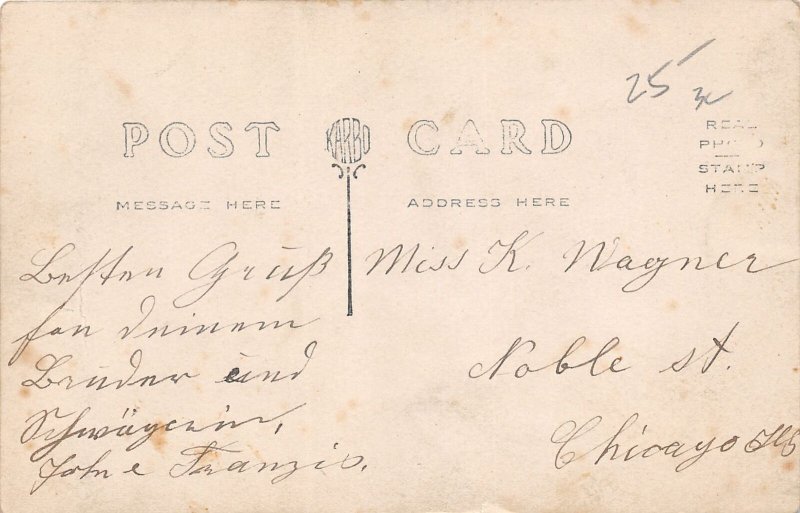 25 3c
POST KARBO CARD
REAL
PHOTO
STAMP
HERE
MESSAGE HERE
ADDRESS HERE
Besten Gruß
fon deinem
Bruder und
Schwägerin,
John e Franzis.
Miss K. Wagner
Noble st.
Chicago Ills